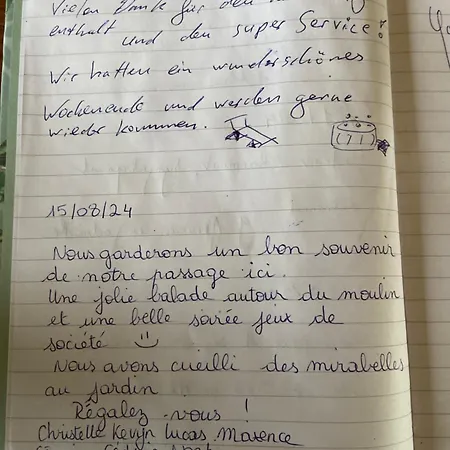 Vielen Dank für den
enthalt und den super Service!
Wir hatten ein wunderschönes
Wochenende und werden gerne
wieder kommen.
15/08/24
Nous garderons un bon souvenir
de notre passage ici.
Une jolie balade autour du moulin
et une belle soirée jeux de
société
Nous avons cueilli des mirabelles
au jardin
Régalez-vous !
Christelle Kevyn Lucas Maxence